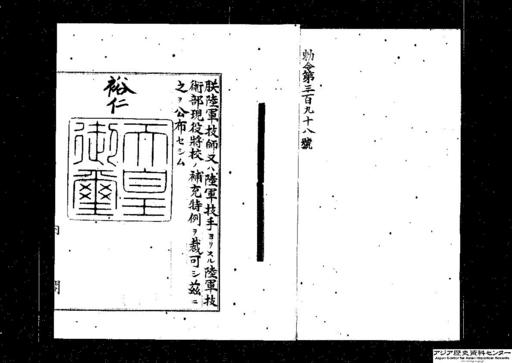 勅令第三百九十八號
朕陸軍技師又ハ陸軍技手ヨリスル陸軍技
術部現役將校ノ補充特例ヲ裁可シ茲ニ
之ヲ公布セシム
裕仁
天皇
御璽
内閣
アジア歴史資料センター
Japan Center for Asian Historical Records